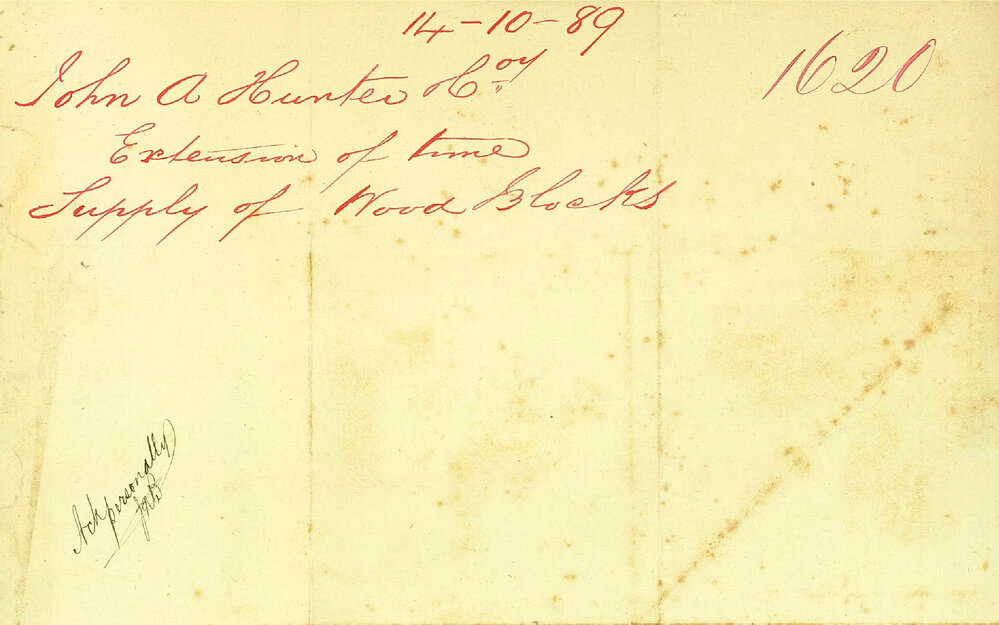 14-10-89
1620
John A Hunter & Coy
Extension of time
Supply of Wood Blocks
Ack
personally